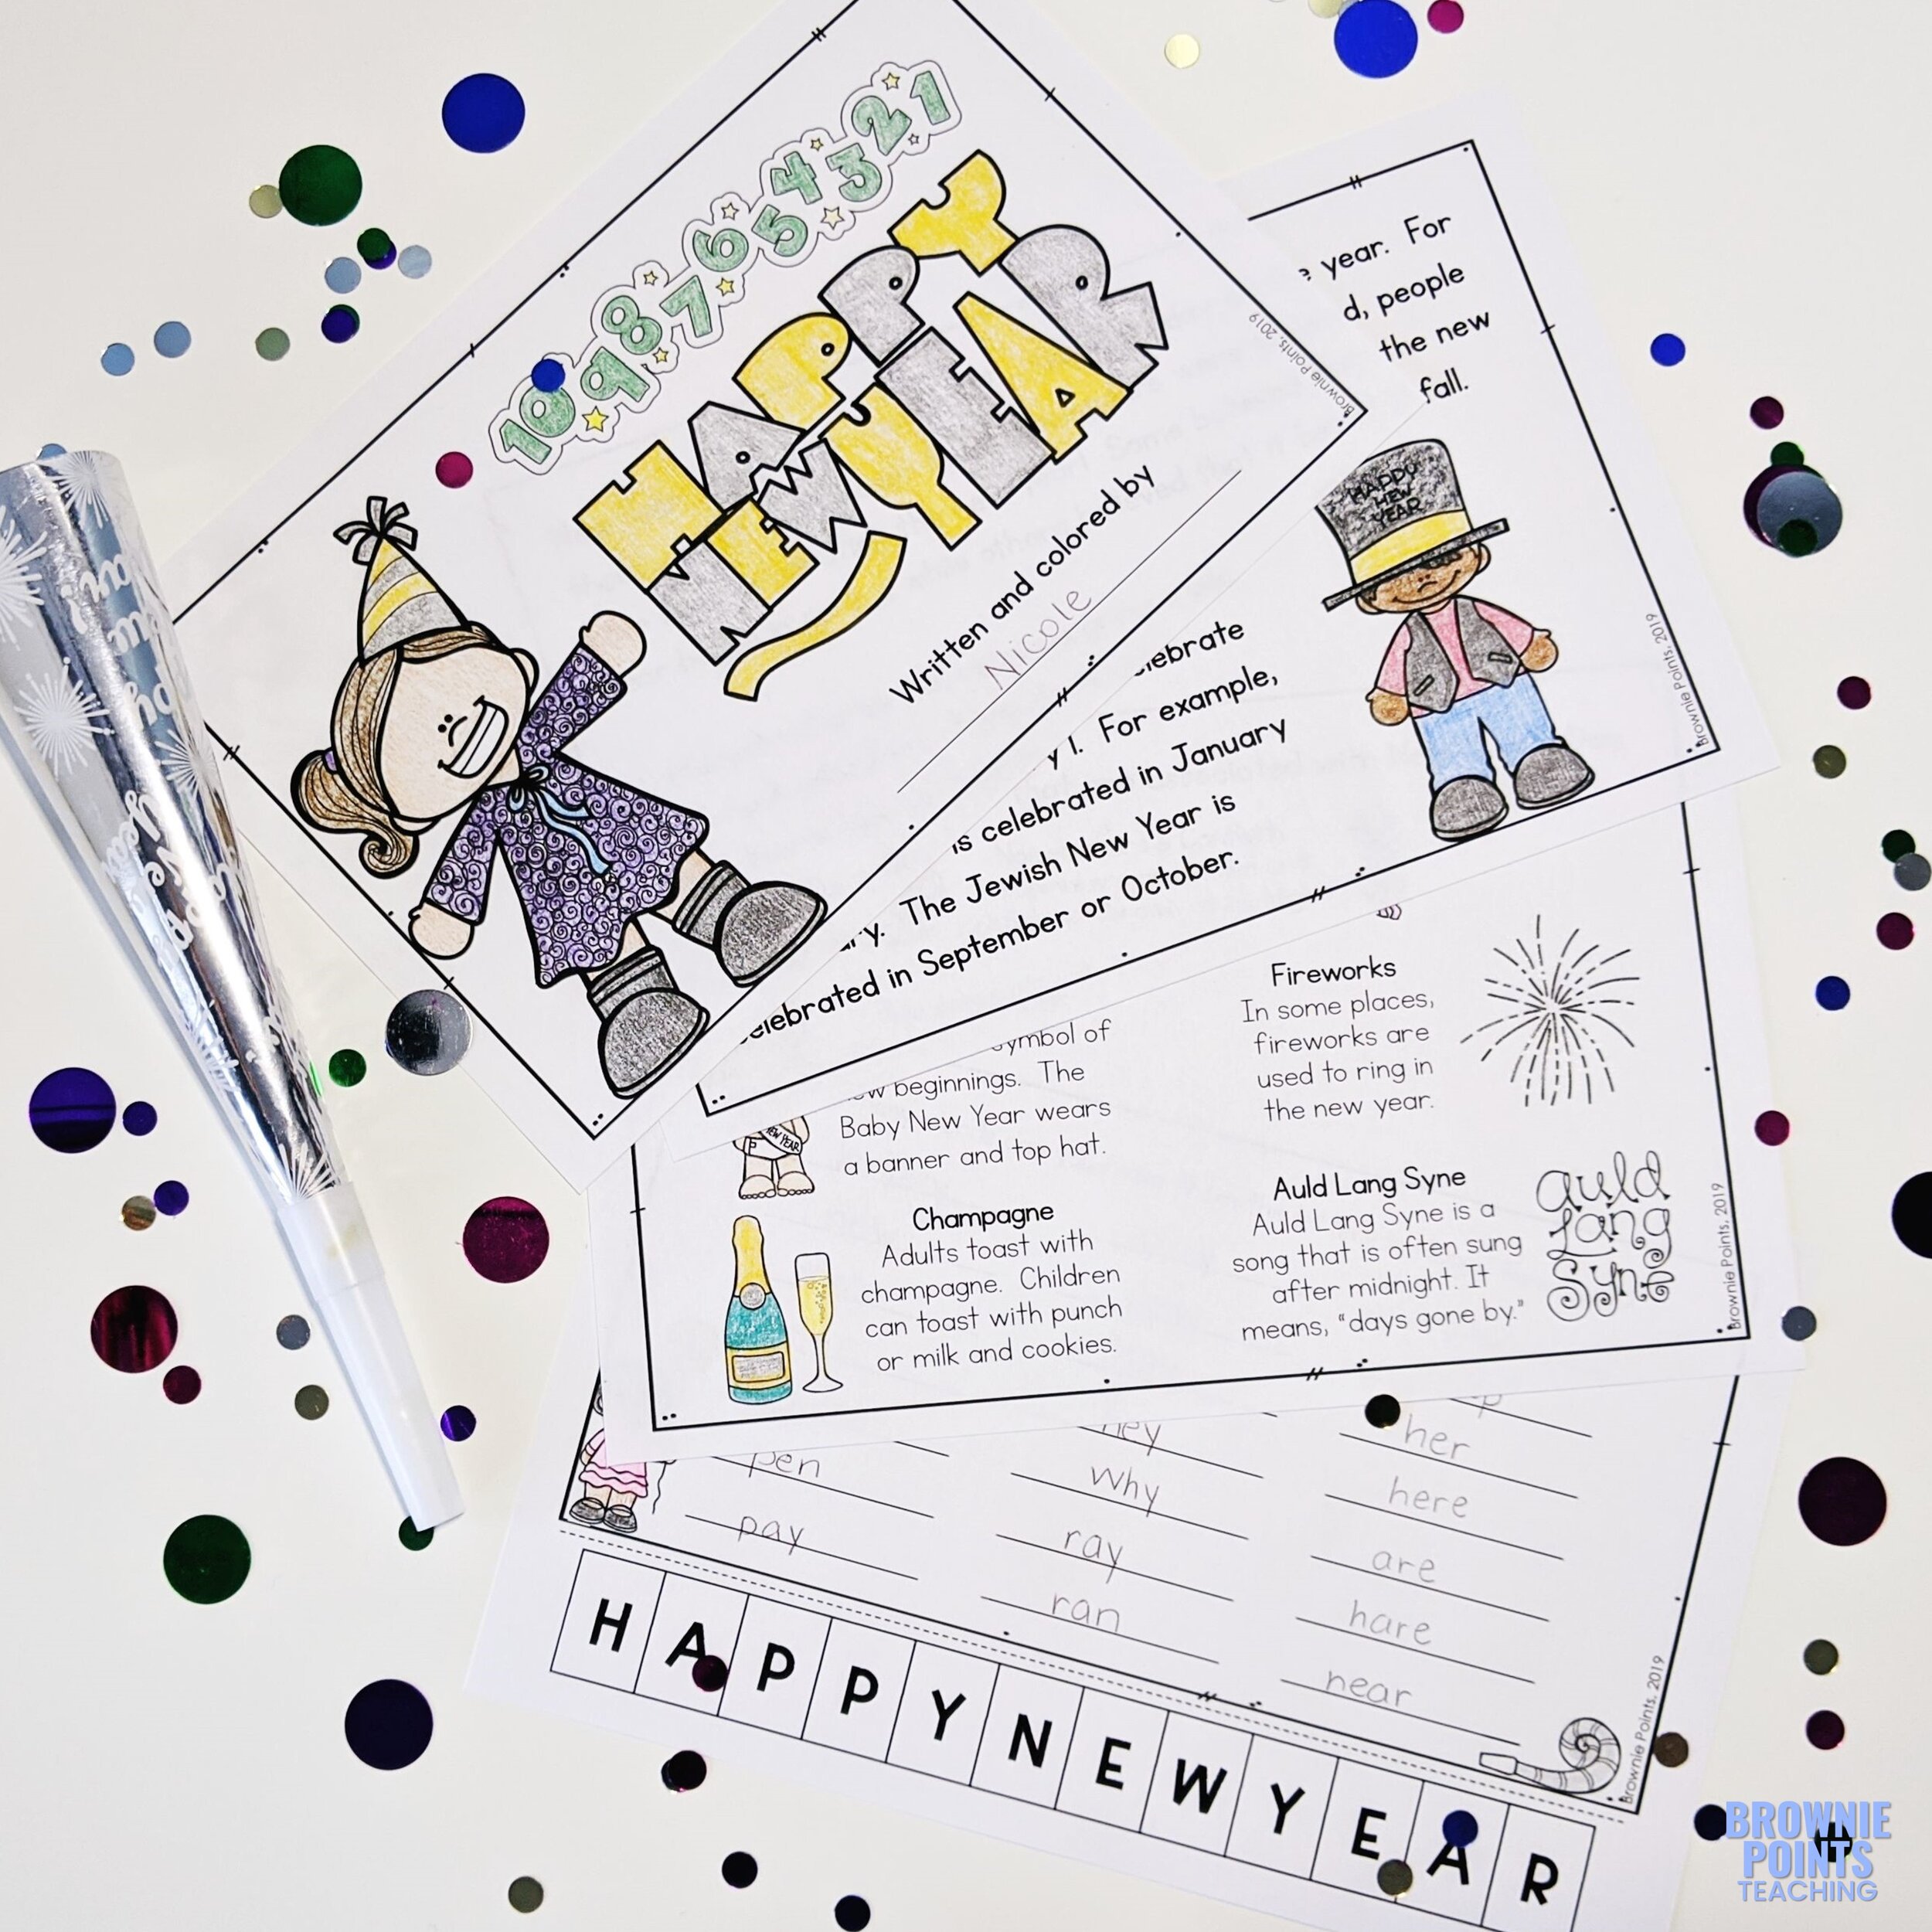 10 9 8 7 6 5 4 3 2 1
HAPPY
NEW YEAR
Written and colored by
Nicole
Brownie Points, 2019
year. For
people
the new
fall.
HAPPY
NEW
YEAR
y 1. For example,
is celebrated in January
The Jewish New Year is
celebrated in September or October.
Brownie Points, 2019
symbol of
beginnings. The
Baby New Year wears
a banner and top hat.
NEW YEAR
Champagne
Adults toast with
champagne. Children
can toast with punch
or milk and cookies.
Fireworks
In some places,
fireworks are
used to ring in
the new year.
Auld Lang Syne
Auld Lang Syne is a
song that is often sung
after midnight. It
means, “days gone by.”
auld
Lang
Syne
Brownie Points, 2019
pen
pay
hey
why
ray
ran
her
here
are
hare
near
Brownie Points, 2019
H A P P Y N E W Y E A R
BROWNIE
POINTS
TEACHING